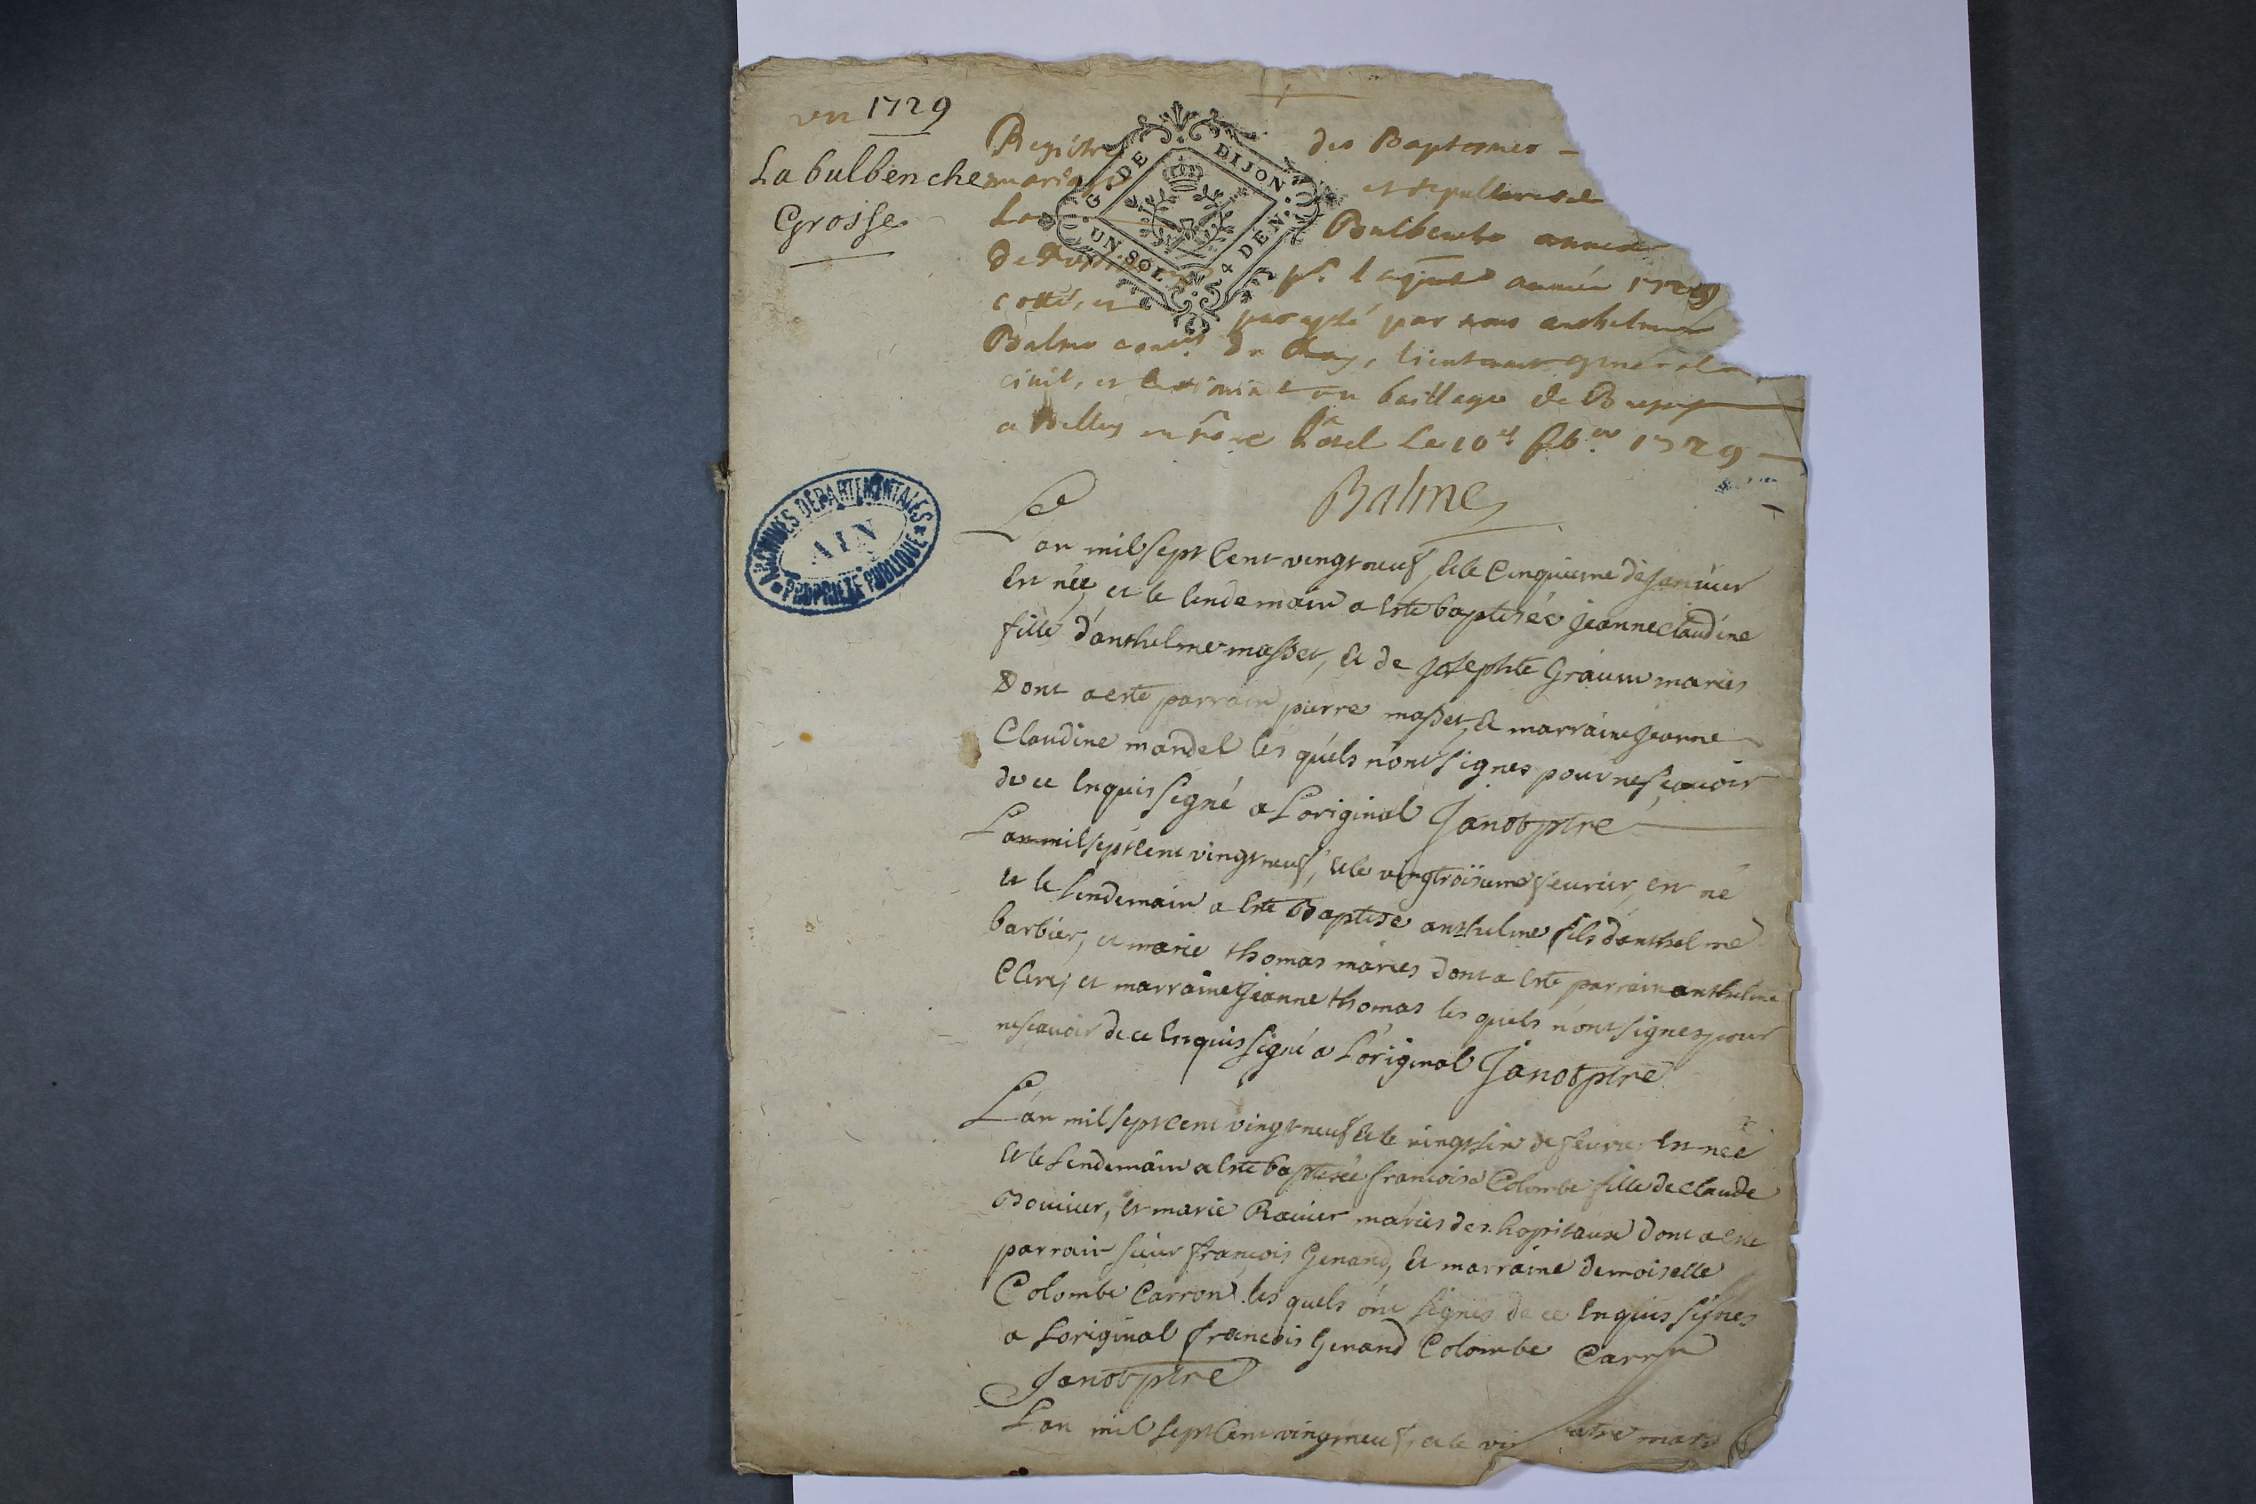 en 1729
La bulbenche
Grosse
G. DE DIJON
UN SOL 4 DEN.
Registre des Baptesmes
mariages et sepultures de
La Bulbenche annexe
De pr. la presente année 1729
cotté, et paraphé par nous anthelme
Balme coner. du Roy, lieutenant general
civil, et criminel au bailliage de Bugey
a Belley en nôtre hôtel Le 10e 1729
Balme
ARCHIVES DÉPARTEMENTALES
AIN
PROPRIÉTÉ PUBLIQUE
L'an mil sept Cent vingt neuf, et le Cinquieme de Janvier
Est née et le lendemain a esté baptisée Jeanne claudine
fille d'anthelme masset, et de Josephte Gravin mariés
Dont a esté parrain pierre masset, et marraine Jeanne
Claudine mandel les quels n'ont signes pour ne scavoir
de ce Enquis signé a L'original Janot ptre
L'an mil sept cent vingt neuf, et le vingtroisieme fevrier, est né
et le lendemain a esté Baptisé anthelme fils d'anthelme
barbier, et marie thomas mariés dont a esté parrain anthelme
Clerc, et marraine Jeanne thomas les quels n'ont signes pour
ne scavoir de ce Enquis signé a L'original Janot ptre
L'an mil sept cent vingt neuf et le vingt six de fevrier Est née
et le Lendemain a esté baptisée francoise Colombe fille de claude
Bouvier, et marie Ravier mariés des hopitaux dont a esté
parrain sieur françois Genand, et marraine demoiselle
Colombe Carron les quels ont signés de ce Enquis signes
a L'original francois Genand Colombe Carron
Janot ptre
L'an mil sept Cent vingt neuf, et le mars